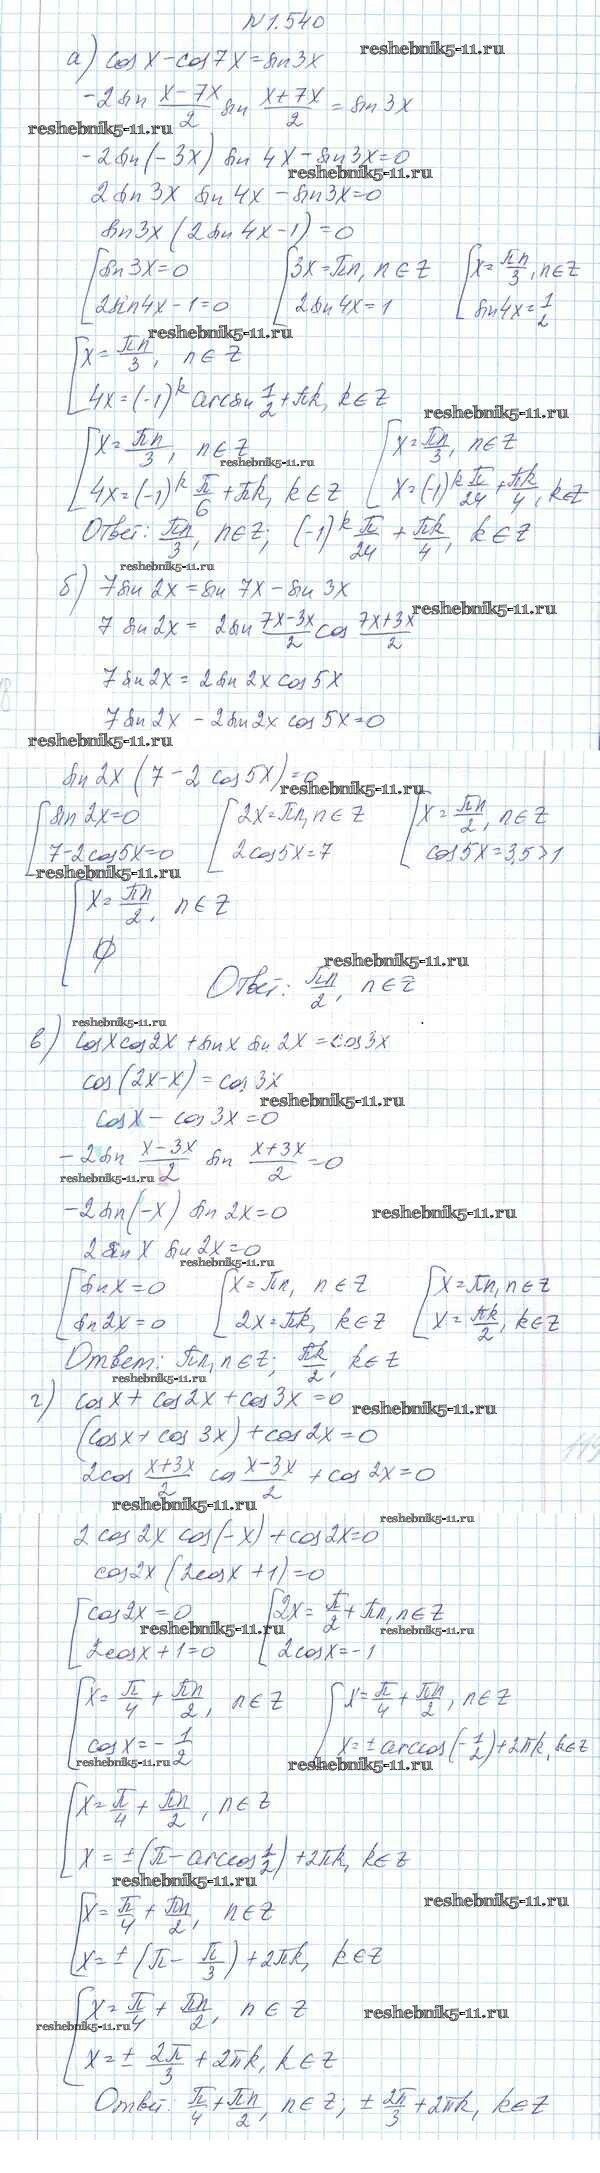 N 1.540
а) cos x - cos 7x = sin 3x
reshebnik5-11.ru
-2 sin (x-7x)/2 sin (x+7x)/2 = sin 3x
reshebnik5-11.ru
-2 sin(-3x) sin 4x - sin 3x = 0
reshebnik5-11.ru
2 sin 3x sin 4x - sin 3x = 0
sin 3x (2 sin 4x - 1) = 0
[ sin 3x = 0 [ 3x = πn, n ∈ Z [ x = πn/3, n ∈ Z
2 sin 4x - 1 = 0 2 sin 4x = 1 sin 4x = 1/2
reshebnik5-11.ru
[ x = πn/3, n ∈ Z
4x = (-1)^k arcsin 1/2 + πk, k ∈ Z
reshebnik5-11.ru
[ x = πn/3, n ∈ Z [ x = πn/3, n ∈ Z
reshebnik5-11.ru
4x = (-1)^k π/6 + πk, k ∈ Z x = (-1)^k π/24 + πk/4, k ∈ Z
Ответ: πn/3, n ∈ Z; (-1)^k π/24 + πk/4, k ∈ Z
reshebnik5-11.ru
б) 7 sin 2x = sin 7x - sin 3x
reshebnik5-11.ru
7 sin 2x = 2 sin (7x-3x)/2 cos (7x+3x)/2
7 sin 2x = 2 sin 2x cos 5x
7 sin 2x - 2 sin 2x cos 5x = 0
reshebnik5-11.ru
sin 2x (7 - 2 cos 5x) = 0
reshebnik5-11.ru
[ sin 2x = 0 [ 2x = πn, n ∈ Z [ x = πn/2, n ∈ Z
7 - 2 cos 5x = 0 2 cos 5x = 7 cos 5x = 3,5 > 1
reshebnik5-11.ru
[ x = πn/2, n ∈ Z
∅
reshebnik5-11.ru
Ответ: πn/2, n ∈ Z
reshebnik5-11.ru
в) cos x cos 2x + sin x sin 2x = cos 3x
cos(2x-x) = cos 3x
reshebnik5-11.ru
cos x - cos 3x = 0
-2 sin (x-3x)/2 sin (x+3x)/2 = 0
reshebnik5-11.ru
-2 sin(-x) sin 2x = 0
reshebnik5-11.ru
2 sin x sin 2x = 0
reshebnik5-11.ru
[ sin x = 0 [ x = πn, n ∈ Z [ x = πn, n ∈ Z
sin 2x = 0 2x = πk, k ∈ Z x = πk/2, k ∈ Z
Ответ: πn, n ∈ Z; πk/2, k ∈ Z
reshebnik5-11.ru
г) cos x + cos 2x + cos 3x = 0
reshebnik5-11.ru
(cos x + cos 3x) + cos 2x = 0
2 cos (x+3x)/2 cos (x-3x)/2 + cos 2x = 0
reshebnik5-11.ru
reshebnik5-11.ru
2 cos 2x cos(-x) + cos 2x = 0
cos 2x (2 cos x + 1) = 0
[ cos 2x = 0 [ 2x = π/2 + πn, n ∈ Z
reshebnik5-11.ru
reshebnik5-11.ru
2 cos x + 1 = 0 2 cos x = -1
[ x = π/4 + πn/2, n ∈ Z [ x = π/4 + πn/2, n ∈ Z
cos x = -1/2 x = ± arccos(-1/2) + 2πk, k ∈ Z
reshebnik5-11.ru
reshebnik5-11.ru
[ x = π/4 + πn/2, n ∈ Z
x = ±(π - arccos 1/2) + 2πk, k ∈ Z
reshebnik5-11.ru
reshebnik5-11.ru
[ x = π/4 + πn/2, n ∈ Z
x = ±(π - π/3) + 2πk, k ∈ Z
[ x = π/4 + πn/2, n ∈ Z
reshebnik5-11.ru
reshebnik5-11.ru
x = ± 2π/3 + 2πk, k ∈ Z
Ответ: π/4 + πn/2, n ∈ Z; ± 2π/3 + 2πk, k ∈ Z